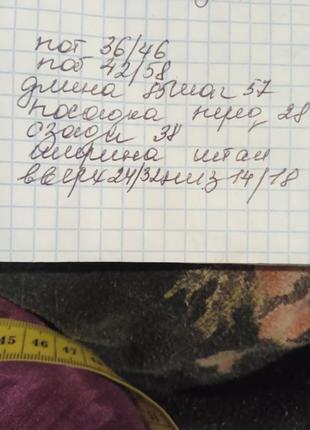 пот 36/46
поб 42/58
длина 85 шаг 57
посадка перед 28
сзади 38
ширина штан
вверх 24/32 низ 14/18
45 46 47